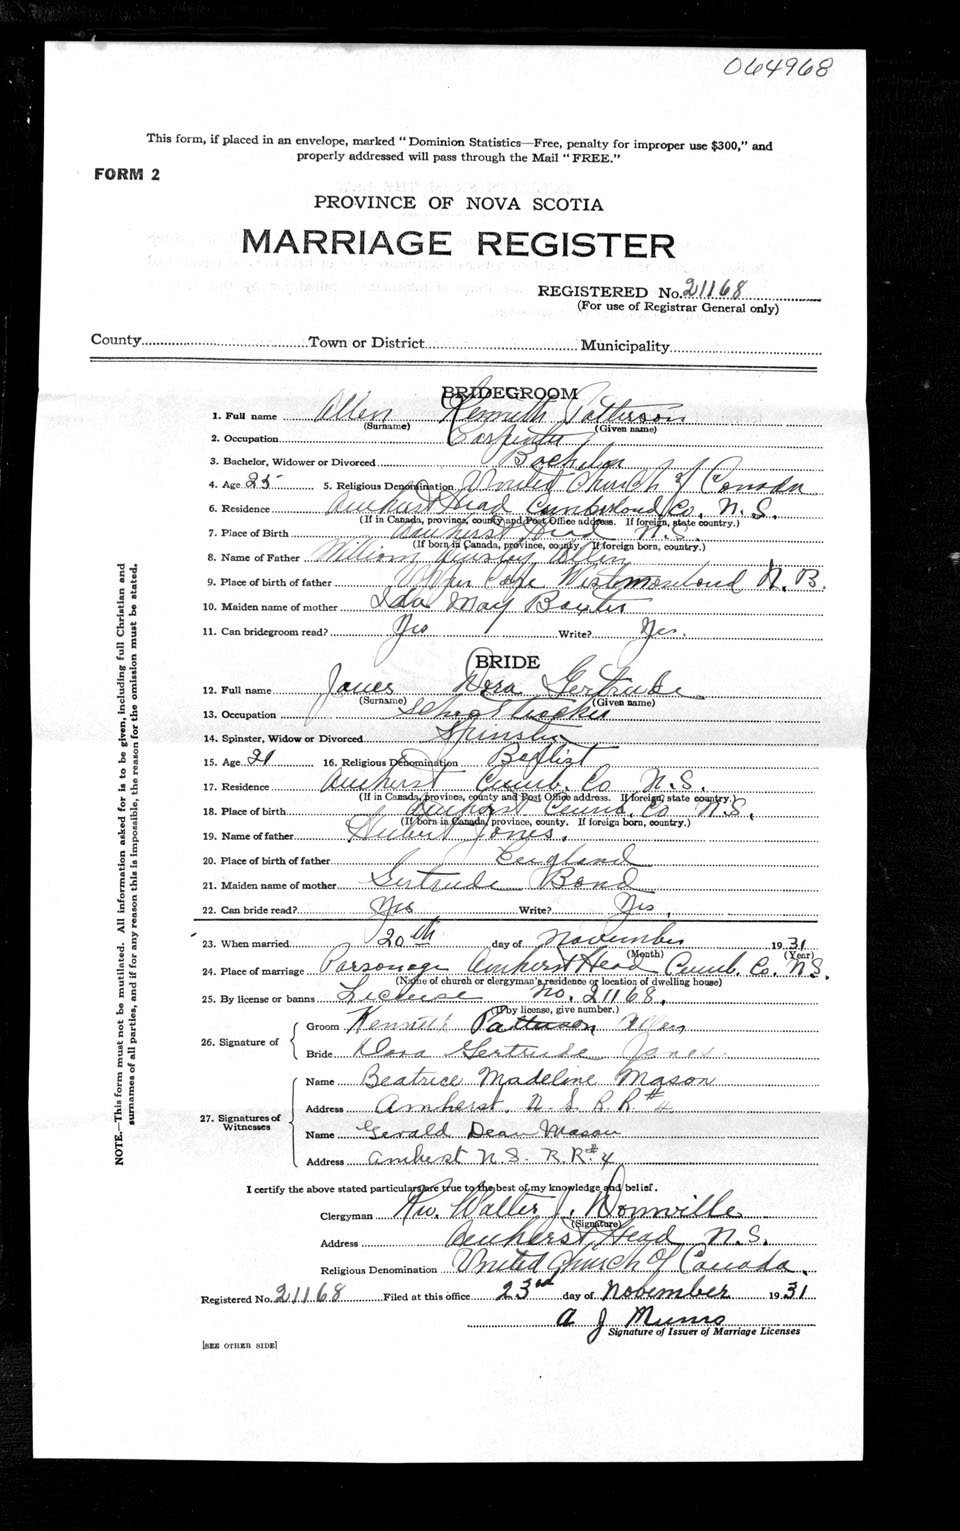 064968
This form, if placed in an envelope, marked "Dominion Statistics—Free, penalty for improper use $300," and
properly addressed will pass through the Mail "FREE."
FORM 2
PROVINCE OF NOVA SCOTIA
MARRIAGE REGISTER
REGISTERED No. 21168
(For use of Registrar General only)
County Town or District Municipality
BRIDEGROOM
1. Full name Allen Kenneth Patterson
(Surname) (Given name)
2. Occupation Carpenter
3. Bachelor, Widower or Divorced Bachelor
4. Age 25 5. Religious Denomination United Church of Canada
6. Residence Amherst Head Cumberland Co. N.S.
(If in Canada, province, county and Post Office address. If foreign, state country.)
7. Place of Birth Amherst Head N.S.
(If born in Canada, province, county. If foreign born, country.)
8. Name of Father William Allen
9. Place of birth of father Upper Cape Westmoreland N.B.
10. Maiden name of mother Ida May Baxter
11. Can bridegroom read? Yes Write? Yes.
BRIDE
12. Full name Jones Dora Gertrude
(Surname) (Given name)
13. Occupation School Teacher
14. Spinster, Widow or Divorced Spinster
15. Age 21 16. Religious Denomination Baptist
17. Residence Amherst Cumb. Co. N.S.
(If in Canada, province, county and Post Office address. If foreign, state country.)
18. Place of birth Amherst Cumb. Co N.S.
(If born in Canada, province, county. If foreign born, country.)
19. Name of father Hubert Jones.
20. Place of birth of father England
21. Maiden name of mother Gertrude Bond
22. Can bride read? Yes Write? Yes.
23. When married 20th day of November 1931
(Month) (Year)
24. Place of marriage Parsonage Amherst Head Cumb. Co. N.S.
(Name of church or clergyman's residence or location of dwelling house)
25. By license or banns License No. 21168.
(If by license, give number.)
26. Signature of Groom Kenneth Patterson Allen
Bride Dora Gertrude Jones.
27. Signatures of Witnesses Name Beatrice Madeline Mason
Address Amherst, N.S. R.R. #4
Name Gerald Dean Mason
Address Amherst N.S. R.R. #4
I certify the above stated particulars are true to the best of my knowledge and belief.
Clergyman Rev. Walter J. Domville
(Signature)
Address Amherst Head N.S.
Religious Denomination United Church of Canada.
Registered No. 21168 Filed at this office 23rd day of November 1931
A J Munro
Signature of Issuer of Marriage Licenses
[SEE OTHER SIDE]
NOTE.—This form must not be mutilated. All information asked for is to be given, including full Christian and
surnames of all parties, and if for any reason this is impossible, the reason for the omission must be stated.